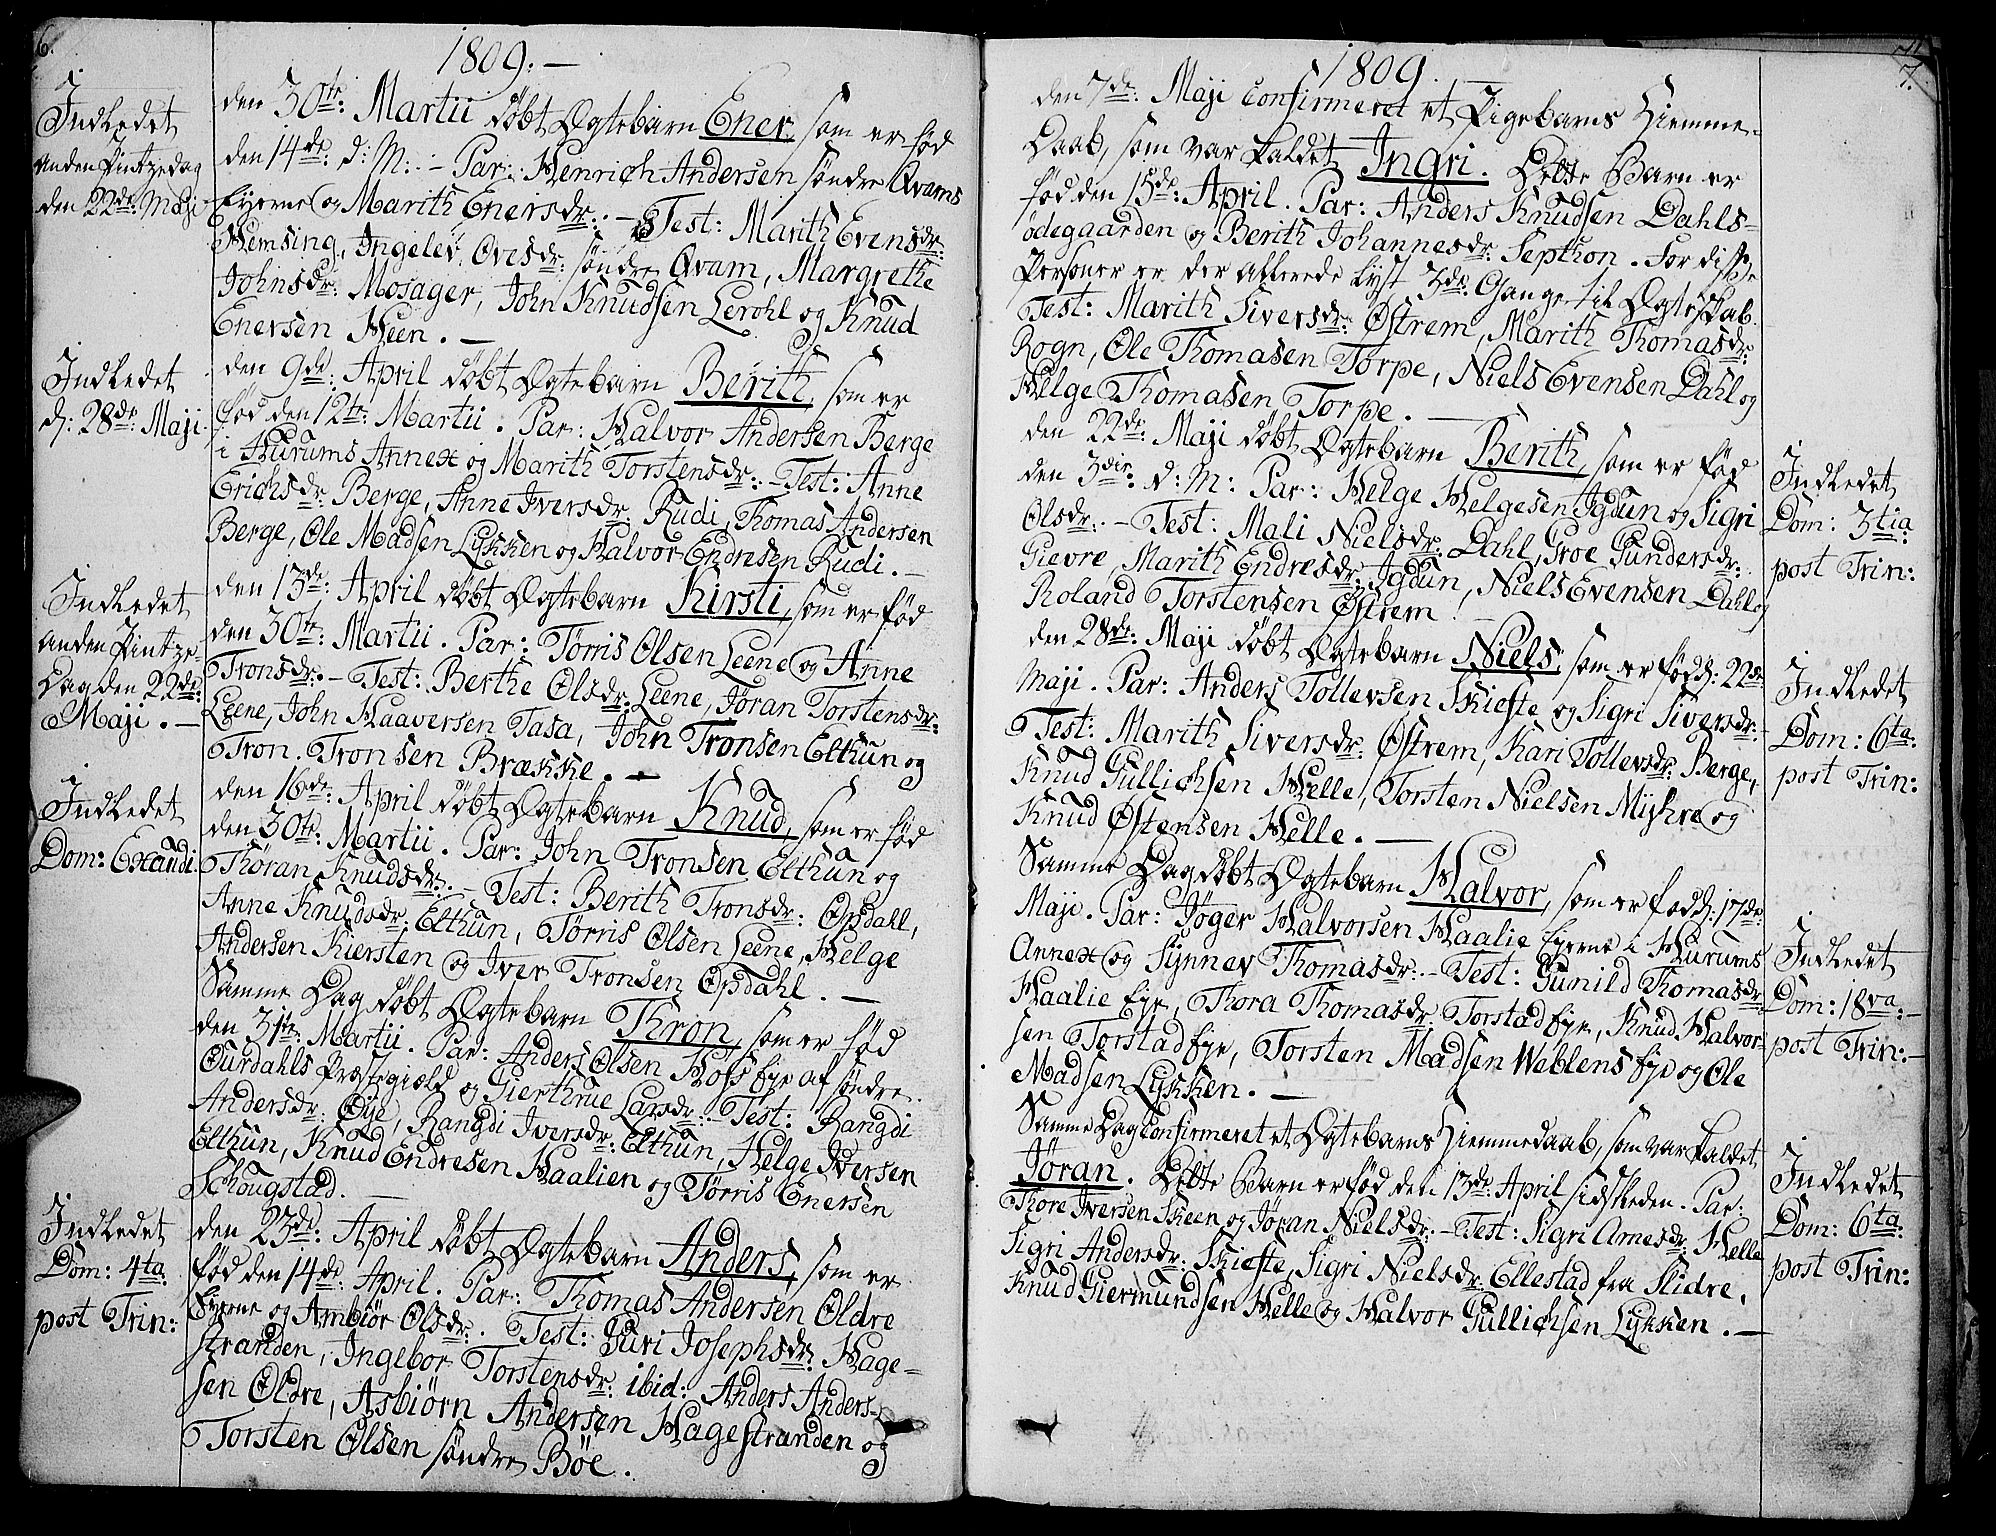 6.
1809.—
Indledet
anden Pintzedag
den 22de: Maji
den 30te: Martii döbt Ægtebarn Ener, som er fød
den 14de: d: M: - Par: Henrich Andersen söndre Qvams
Eierne og Marith Enersdr: - Test: Marith Evensdr:
Hemsing, Ingelev Ovesdr: söndre Qvam, Margrethe
Johnsdr: Mosager, John Knudsen Lerohl og Knud
Enersen Heen. —
Indledet
d: 28de: Maji.
den 9de: April döbt Ægtebarn Berith, som er
fød den 12te: Martii. Par: Halvor Andersen Berge
i Hurums Annex og Marith Torstensdr: - Test: Anne
Erichsdr: Berge, Anne Iversdr: Rudi, Thomas Andersen
Berge, Ole Madsen Lykken og Halvor Endresen Rudi. —
Indledet
anden Pintze-
Dag den 22de:
Maji. —
den 13de: April döbt Ægtebarn Kirsti, som er fød
den 30te: Martii. Par: Tørris Olsen Leene og Anne
Tronsdr: - Test: Berthe Olsdr: Leene, Jøran Torstensdr:
Leene, John Haaversen Tasa, John Tronsen Elthun og
Tron Tronsen Brække. —
Indledet
Dom: Exaudi.
den 16de: April döbt Ægtebarn Knud, som er fød
den 30te: Martii. Par: John Tronsen Elthun og
Thøran Knudsdr: - Test: Berith Tronsdr: Opdahl,
Anne Knudsdr: Elthun, Tørris Olsen Leene, Helge
Andersen Kiersten og Iver Tronsen Opdahl. —
Samme Dag döbt Ægtebarn Thron, som er fød
den 31te: Martii. Par: Anders Olsen Hofs Eje af söndre
Ourdahls Præstegield og Gierthrue Larsdr: - Test: Rangdi
Andersdr: Øye, Rangdi Iversdr: Elthun, Helge Iversen
Elthun, Knud Endresen Haalien og Tørris Enersen
Schougstad. —
Indledet
Dom: 4ta:
post Trin:
den 23de: April döbt Ægtebarn Anders, som er
fød den 14de: April. Par: Thomas Andersen Oldre
Eierne og Ambiør Olsdr: . Test: Guri Josephsdr: Hage-
stranden, Ingebor Torstensdr: ibid: Anders Anders-
sen Oldre, Asbiørn Andersen Hagestranden og
Torsten Olsen söndre Böe.
7.
7.
1809.
den 7de: Maji confirmeret et Pigebarns Hiemme-
Daab, som var kaldet Ingri. Dette Barn er
fød den 15de: April. Par: Anders Knudsen Dahls-
ødegaarden og Berith Johannesdr: Septhon. For disse
Personer er der allerede lyst 3de: Gange til Ægteskab.
Test: Marith Siversdr: Østrem, Marith Thomasdr:
Rogn, Ole Thomasen Torpe, Niels Evensen Dahl og
Helge Thomasen Torpe. —
den 22de: Maji döbt Ægtebarn Berith, som er fød
den 3die: d: M: Par: Helge Helgesen Igdun og Sigri
Olsdr: - Test: Mali Nielsdr: Dahl, Groe Gundersdr:
Gievre, Marith Endresdr: Igdun, Niels Evensen Dahl og
Roland Torstensen Østrem.
Indledet
Dom: 3tia:
post Trin:
den 28de: Maji döbt Ægtebarn Niels, som er fød d: 22de
Maji. Par: Anders Tollevsen Skiefte og Sigri Siversdr: -
Test: Marith Siversdr: Østrem, Kari Tollevsdr: Berge,
Knud Gullichsen Helle, Torsten Nielsen Mykre og
Knud Østensen Helle. —
Indledet
Dom: 6ta:
post Trin:
Samme Dag döbt Ægtebarn Halvor, som er fød d: 17de:
Maji. Par: Jøger Halvorsen Haalie Eierne i Hurums
Annex og Synnev Thomasdr: - Test: Gunild Thomasdr:
Haalie Eje, Thora Thomasdr: Torstad Eje, Knud Halvor-
sen Torstad Eje, Torsten Madsen Weblens Eje og Ole
Madsen Lykken. —
Indledet
Dom: 18va: -
post Trin: -
Samme Dag confirmeret et Ægtebarns Hiemmedaab, som var kaldet
Jøran. Dette Barn er fød den 13de: April sidsleden. Par:
Thore Iversen Skeen og Jøran Nielsdr: - Test: Sigri Arnesdr: Helle
Sigri Andersdr: Skiefte, Sigri Nielsdr: Ellestad fra Slidre,
Knud Giermundsen Helle og Halvor Gullichsen Lykken. —
Indledet
Dom: 6ta:
post Trin: